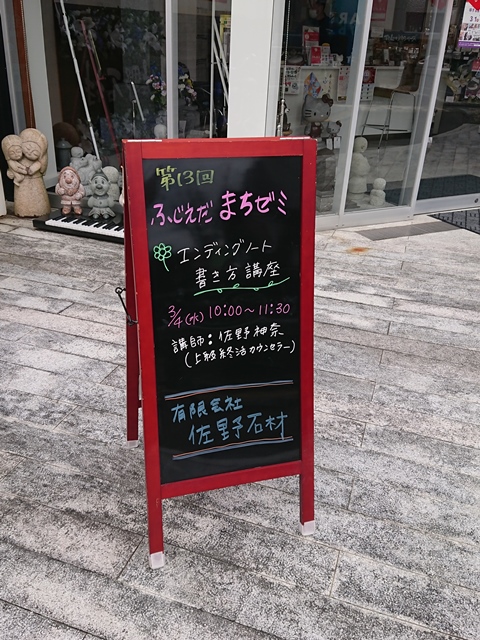 第13回
ふじえだ まちゼミ
エンディングノート
書き方講座
3/4(水) 10:00～11:30
講師：佐野神奈
(上級終活カウンセラー)
有限会社
佐野石材